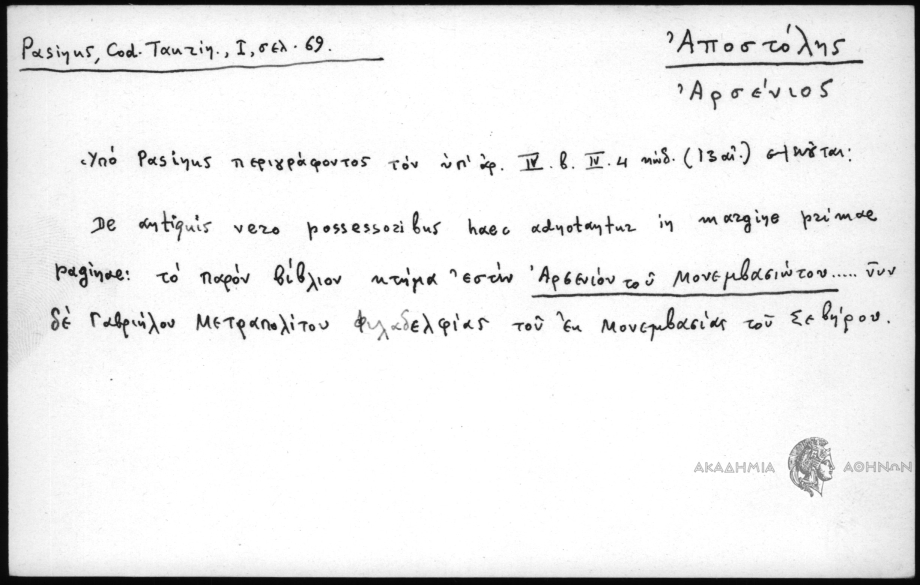 Pasinus, Cod. Taurin., I, σελ. 69.
Ἀποστόλης
Ἀρσένιος
Ὑπό Pasinus περιγράφοντος τόν ὑπ' ἀρ. IV. b. IV. 4 κώδ. (13 αἰ.)
De antiquis vero possessoribus haec adnotantur in margine primae
paginae: τό παρόν βίβλιον κτήμα ἐστίν Ἀρσενίου τοῦ Μονεμβασιώτου..... νῦν
δέ Γαβριήλου Μετραπολίτου Φιλαδελφίας τοῦ ἐκ Μονεμβασίας τοῦ Σεβήρου.
ΑΚΑΔΗΜΙΑ ΑΘΗΝΩΝ